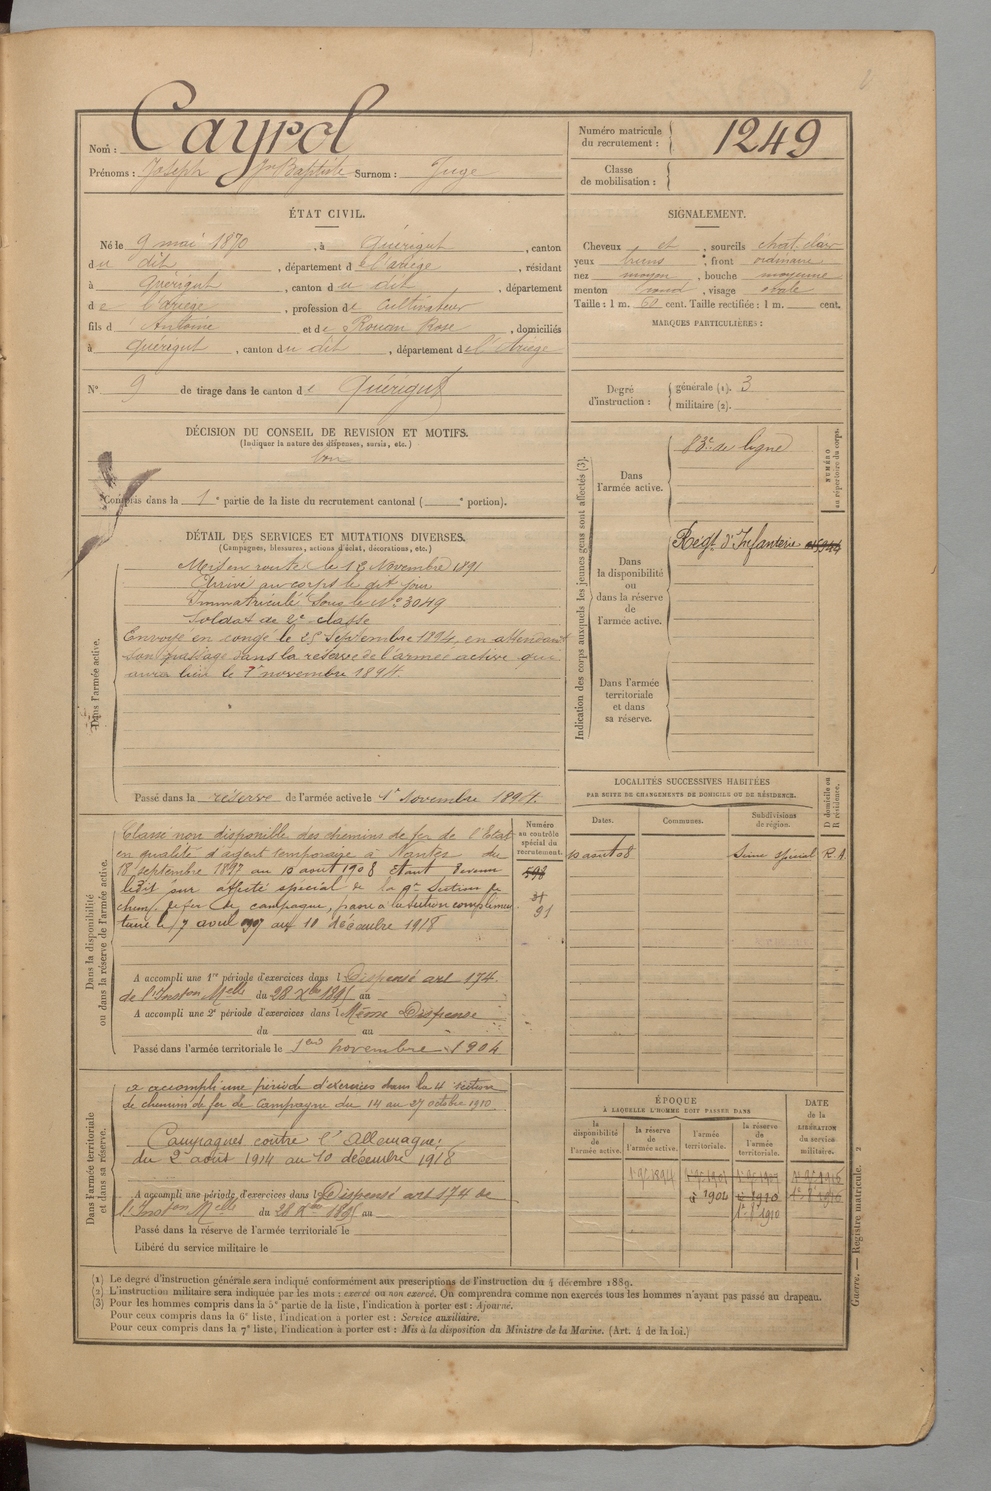 Nom : Cayrol
Prénoms : Joseph Jn Baptiste Surnom : Juge
Numéro matricule du recrutement : 1249
Classe de mobilisation :
ÉTAT CIVIL.
Né le 9 mai 1870, à Quérigut, canton
du dit, département de l'ariège, résidant
à Quérigut, canton du dit, département
de l'ariège, profession de cultivateur
fils d'Antoine et de Rouan Rose, domiciliés
à Quérigut, canton du dit, département de l'Ariège
N° 9 de tirage dans le canton de Quérigut
SIGNALEMENT.
Cheveux et, sourcils chat. clair
yeux bruns, front ordinaire
nez moyen, bouche moyenne
menton rond, visage ovale
Taille : 1 m. 60 cent. Taille rectifiée : 1 m. cent.
MARQUES PARTICULIÈRES :
Degré d'instruction : générale (1). 3
militaire (2).
DÉCISION DU CONSEIL DE REVISION ET MOTIFS.
(Indiquer la nature des dispenses, sursis, etc.)
bon
Compris dans la 1e partie de la liste du recrutement cantonal ( e portion).
DÉTAIL DES SERVICES ET MUTATIONS DIVERSES.
(Campagnes, blessures, actions d'éclat, décorations, etc.)
Dans l'armée active.
Mis en route le 12 Novembre 1891
Arrivé au corps le dit jour
Immatriculé sous le No 3049
Soldat de 2e classe
Envoyé en congé le 25 Septembre 1894, en attendant
son passage dans la réserve de l'armée active qui
aura lieu le 1r novembre 1894.
Passé dans la réserve de l'armée active le 1r Novembre 1894.
Indication des corps auxquels les jeunes gens sont affectés (3).
NUMÉRO au répertoire du corps.
Dans l'armée active.
83e de ligne
Dans la disponibilité ou dans la réserve de l'armée active.
Régt d'Infanterie
Dans l'armée territoriale et dans sa réserve.
LOCALITÉS SUCCESSIVES HABITÉES
PAR SUITE DE CHANGEMENTS DE DOMICILE OU DE RÉSIDENCE.
Dates. Communes. Subdivisions de région. D domicile ou R résidence.
10 août 08 Seine spécial R. A.
Dans la disponibilité ou dans la réserve de l'armée active.
Numéro au contrôle spécial du recrutement.
598
91
Classé non disponible des chemins de fer de l'Etat
en qualité d'agent temporaire à Nantes du
18 septembre 1897 au 10 août 1908 étant devenu
affecté spécial de la 9e Section de
chem. de fer de campagne, passé à la section complémen
taire le 7 avril 1907 au 10 décembre 1918
A accompli une 1re période d'exercices dans l Dispensé art 174.
de l'Inston Melle du 28 Xbre 1895 au
A accompli une 2e période d'exercices dans l Même Dispense
du au
Passé dans l'armée territoriale le 1er novembre 1904
Dans l'armée territoriale et dans sa réserve.
a accompli une période d'exercices dans la 4 section
de chemins de fer de Campagne du 14 au 27 octobre 1910
Campagnes contre l'Allemagne:
du 2 août 1914 au 10 décembre 1918
A accompli une période d'exercices dans l Dispensé art 174 de
l'Inston Melle du 28 Xbre 1895 au
Passé dans la réserve de l'armée territoriale le
Libéré du service militaire le
ÉPOQUE
À LAQUELLE L'HOMME DOIT PASSER DANS
DATE de la LIBÉRATION du service militaire.
la disponibilité de l'armée active. la réserve de l'armée active. l'armée territoriale. la réserve de l'armée territoriale.
1r 9e 1894
1904 1910
1910
(1) Le degré d'instruction générale sera indiqué conformément aux prescriptions de l'instruction du 4 décembre 1889.
(2) L'instruction militaire sera indiquée par les mots : exercé ou non exercé. On comprendra comme non exercés tous les hommes n'ayant pas passé au drapeau.
(3) Pour les hommes compris dans la 5e partie de la liste, l'indication à porter est : Ajourné.
Pour ceux compris dans la 6e liste, l'indication à porter est : Service auxiliaire.
Pour ceux compris dans la 7e liste, l'indication à porter est : Mis à la disposition du Ministre de la Marine. (Art. 4 de la loi.)
Guerre. — Registre matricule. 2